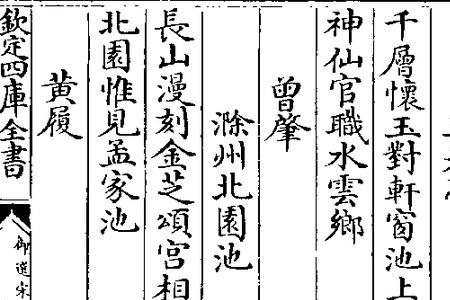 千層懷玉對軒窗池上
神仙官職水雲鄉
曾肇
滁州北園池
長山漫刻金芝頌宫相
北園惟見孟家池
黄履
欽定四庫全書
御選宋